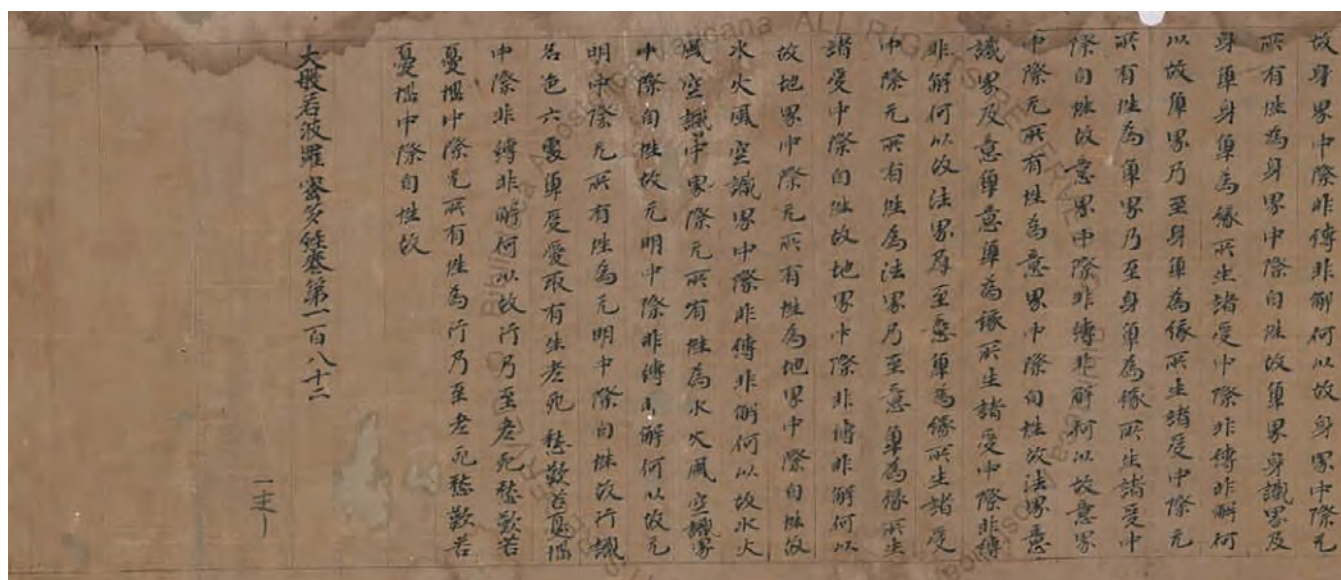 故身界中際非縛非解何以故身界中際无
所有性為身界中際自性故觸界身識界及
身觸身觸為緣所生諸受中際非縛非解何
以故觸界乃至身觸為緣所生諸受中際无
所有性為觸界乃至身觸為緣所生諸受中
際自性故意界中際非縛非解何以故意界
中際无所有性為意界中際自性故法界意
識界及意觸意觸為緣所生諸受中際非縛
非解何以故法界乃至意觸為緣所生諸受
中際无所有性為法界乃至意觸為緣所生
諸受中際自性故地界中際非縛非解何以
故地界中際无所有性為地界中際自性故
水火風空識界中際非縛非解何以故水火
風空識中界際无所有性為水火風空識界
中際自性故无明中際非縛非解何以故无
明中際无所有性為无明中際自性故行識
名色六處觸受愛取有生老死愁歎苦憂惱
中際非縛非解何以故行乃至老死愁歎苦
憂惱中際无所有性為行乃至老死愁歎苦
憂惱中際自性故
大般若波羅蜜多經卷第一百八十二